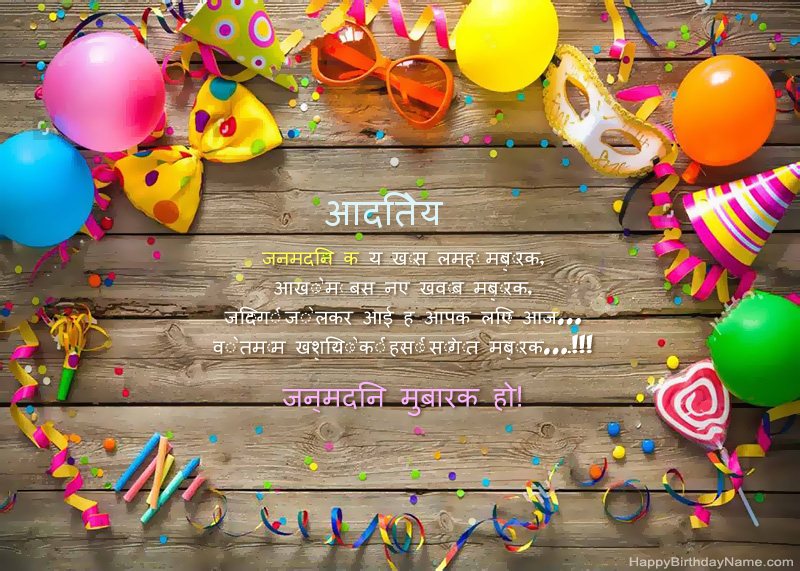 आदतिय
जनमदनि क य खास लमहा मबारक,
आखों मे बसे नए खवाब मबारक,
जदिंगी जो लेकर आई ह आपक लएि आज...
वो तमाम खशयिों की हसी सौगात मबारक...!!!
जन्मदनि मुबारक हो!
HappyBirthdayName.com